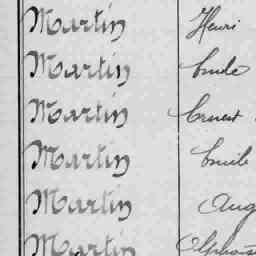 Martin Henri
Martin Emile
Martin Ernest
Martin Emile
Martin Aug
Martin Alphonse